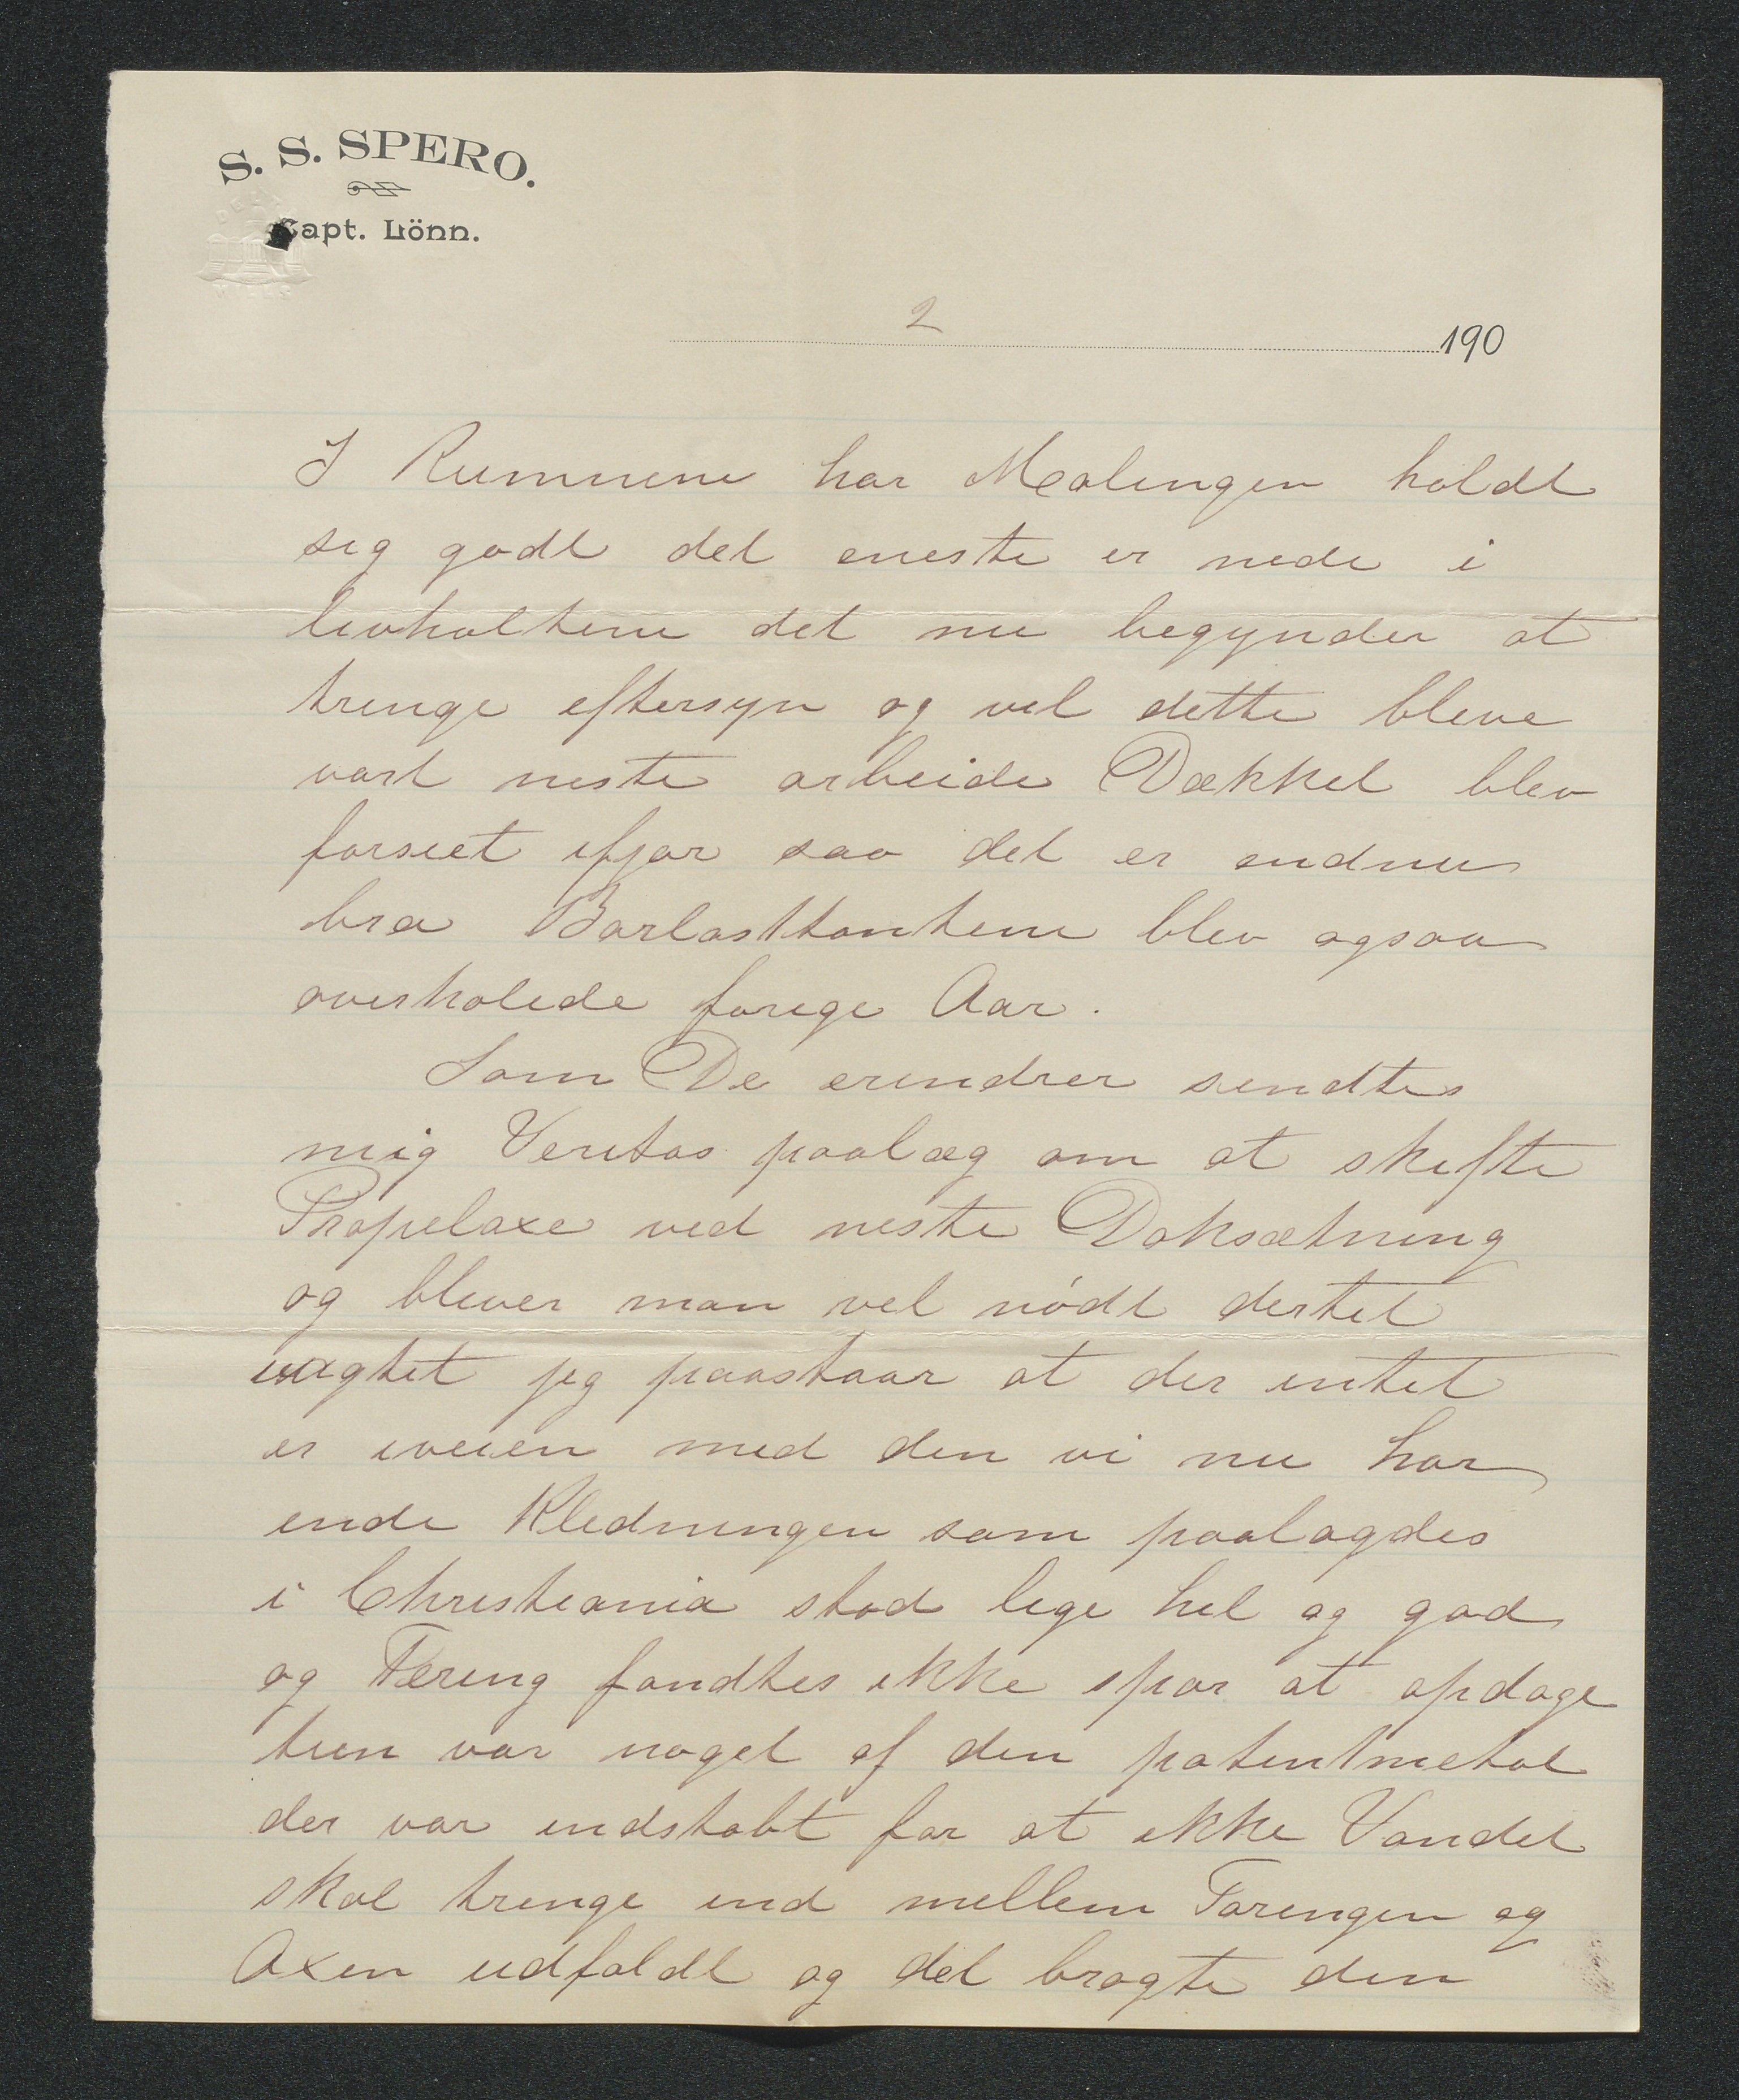 S. S. SPERO.
Capt. Lönn.
2 190
I Rummene har Malingen holdt
sig godt det eneste er nede i
levholtene det nu begynder at
trenge eftersyn og vil dette bleve
vort neste arbeide Dækket blev
forseet ifjor saa det er endnu
bra Barlasttantene blev ogsaa
overholede forege Aar.
Som De erindrer sendtes
mig Veritas paalæg om at skifte
Propelaxe ved neste Doksætning
og blever man vel nödt dertil
uagtet jeg paastaar at der intet
er iveien med den vi nu har
ende Kledningen som paalagdes
i Christiania stod lege hel og god
og Tæring fandtes ikke spor at opdage
kun var noget af den patentmetal
der var indstøbt for at ikke Vandet
skal trenge ind mellem Foringen og
Axen udfaldt og det bragte den